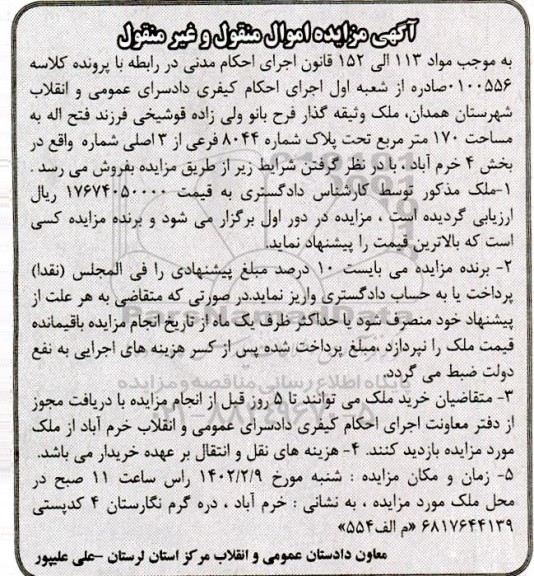 آگهی مزایده اموال منقول و غیر منقول
به موجب مواد ۱۱۳ الی ۱۵۲ قانون اجرای احکام مدنی در رابطه با پرونده کلاسه
۰۱۰۰۵۵۶صادره از شعبه اول اجرای احکام کیفری دادسرای عمومی و انقلاب
شهرستان همدان، ملک وثیقه گذار فرح بانو ولی زاده قوشیخی فرزند فتح اله به
مساحت ۱۷۰ متر مربع تحت پلاک شماره ۸۰۴۴ فرعی از ۳ اصلی شماره واقع در
بخش ۴ خرم آباد ، بادر نظر گرفتن شرایط زیر از طریق مزایده بفروش می رسد .
۱-ملک مذکور توسط کارشناس دادگستری به قیمت ۱۷۶۷۴۰۵۰۰۰۰ ریال
ارزیابی گردیده است ، مزایده در دور اول برگزار می شود و برنده مزایده کسی
است که بالاترین قیمت را پیشنهاد نماید.
۲- برنده مزایده می بایست ۱۰ درصد مبلغ پیشنهادی را فی المجلس (نقدا)
پرداخت یا به حساب دادگستری واریز نماید.در صورتی که متقاضی به هر علت از
پیشنهاد خود منصرف شود یا حداکثر ظرف یک ماه از تاریخ انجام مزایده باقیمانده
قیمت ملک را نپردازد ،مبلغ پرداخت شده پس از کسر هزینه های اجرایی به نفع
دولت ضبط می گردد.
۳- متقاضیان خرید ملک می توانند تا ۵ روز قبل از انجام مزایده با دریافت مجوز
از دفتر معاونت اجرای احکام کیفری دادسرای عمومی و انقلاب خرم آباد از ملک
مورد مزایده بازدید کنند. ۴- هزینه های نقل و انتقال بر عهده خریدار می باشد.
۵- زمان و مکان مزایده : شنبه مورخ ۱۴۰۲/۲/۹ راس ساعت ۱۱ صبح در
محل ملک مورد مزایده ، به نشانی : خرم آباد ، دره گرم نگارستان ۴ کدپستی
۶۸۱۷۶۴۴۱۳۹ «م الف۵۵۴»
معاون دادستان عمومی و انقلاب مرکز استان لرستان -علی علیپور
ParsNamadData
پایگاه اطلاع رسانی مناقصه و مزایده